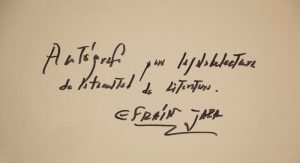 Autógrafo para la
de la Facultad de Literatura.
EFRAÍN JARA